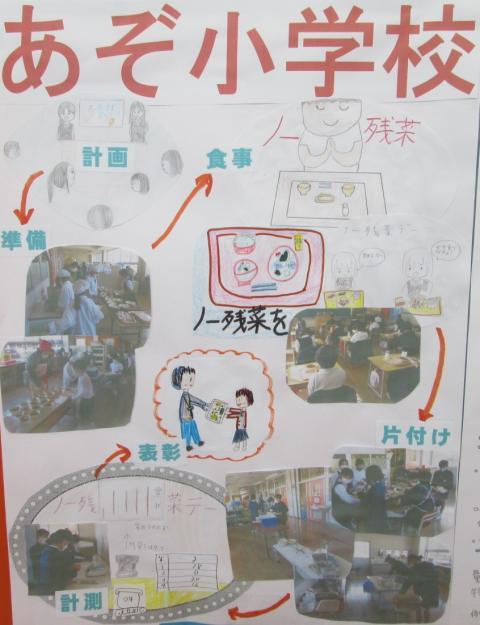 あぞ小学校
計画
食事
ノー残菜
準備
ノー残菜デー
ノー残菜を
片付け
表彰
ノー残
菜デー
計測